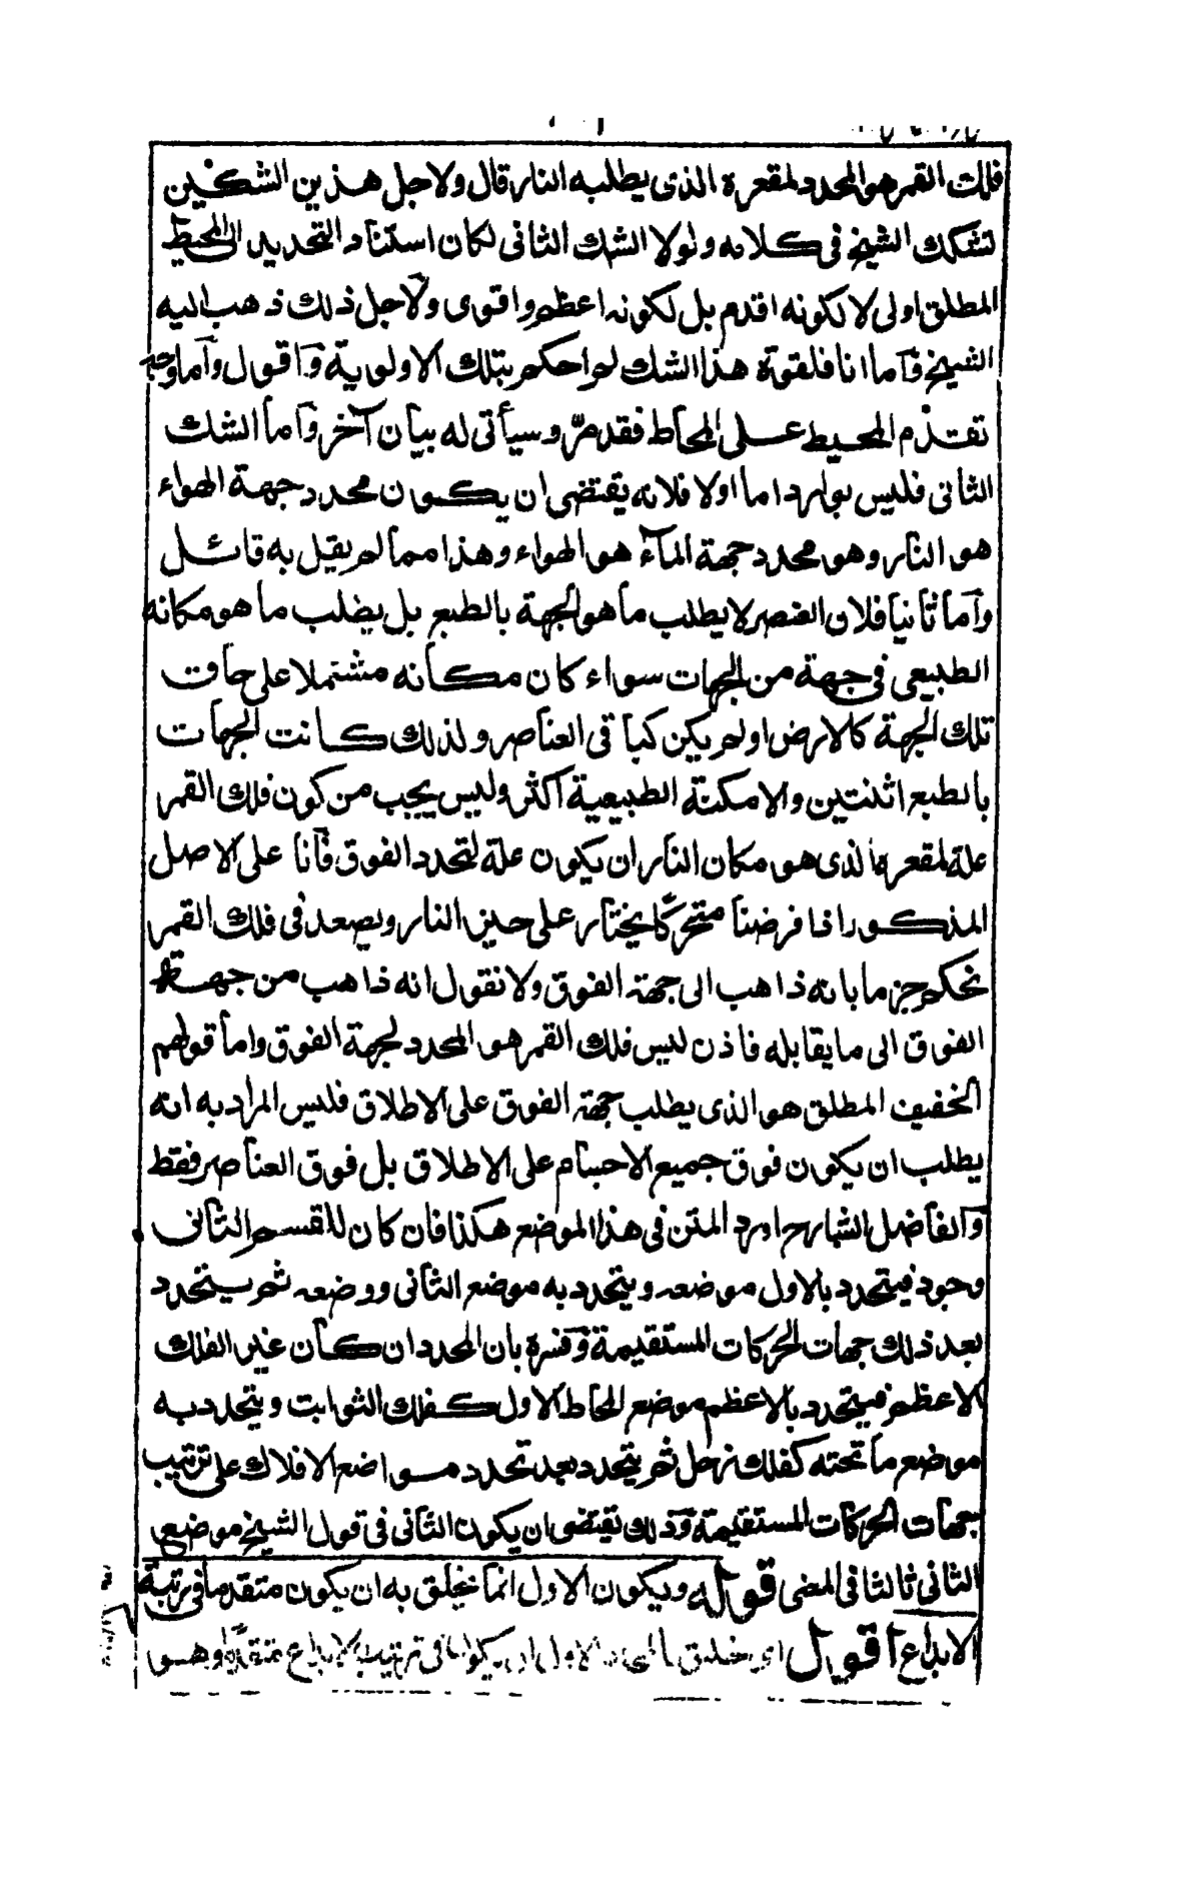 فلك القمر هو المحدد لمقعره الذى يطلبه النار قال ولاجل هذين الشكين
تشكك الشيخ فى كلامه ولولا الشك الثانى لكان استناد التحديد الى المحيط
المطلق اولى لا لكونه اقدم بل لكونه اعظم واقوى ولاجل ذلك ذهب اليه
الشيخ واما انا فلقوة هذا الشك لم احكم بتلك الاولوية واقول واما وجه
تقدم المحيط على المحاط فقد مر وسيأتى له بيان آخر واما الشك
الثانى فليس بوارد اما اولا فلانه يقتضى ان يكون محدد جهة الهواء
هو النار وهو محدد جهة الماء هو الهواء وهذا مما لم يقل به قائل
واما ثانيا فلان العنصر لا يطلب ما هو الجهة بالطبع بل يطلب ما هو مكانه
الطبيعى فى جهة من الجهات سواء كان مكانه مشتملا على حاقت
تلك الجهة كالارض او لم يكن كباقى العناصر ولذلك كانت الجهات
بالطبع اثنتين والامكنة الطبيعية اكثر وليس يجب من كون فلك القمر
علة لمقعره الذى هو مكان النار ان يكون علة لتحدد الفوق فانا على الاصل
المذكور اذا فرضنا متحركا يختار على حيز النار ويصعد فى فلك القمر
نحكم جزما بانه ذاهب الى جهة الفوق ولا نقول انه ذاهب من جهة
الفوق الى ما يقابله فاذن ليس فلك القمر هو المحدد لجهة الفوق واما قولهم
الخفيف المطلق هو الذى يطلب جهة الفوق على الاطلاق فليس المراد به انه
يطلب ان يكون فوق جميع الاجسام على الاطلاق بل فوق العناصر فقط
والفاضل الشارح اورد المتن فى هذا الموضع هكذا فان كان للقسم الثانى
وجود فيتحدد بالاول موضعه ويتحدد به موضع الثانى ووضعه ثم يتحدد
بعد ذلك جهات الحركات المستقيمة وفسره بان المحدد ان كان غير الفلك
الاعظم فيتحدد بالاعظم موضع المحاط الاول كفلك الثوابت ويتحدد به
موضع ما تحته كفلك زحل ثم يتحدد بعد تحدد مواضع الافلاك على ترتيب
جهات الحركات المستقيمة وذلك يقتضى ان يكون الثانى فى قول الشيخ موضع
الثانى ثالثا فى المضى قوله ويكون الاول انما خليق به ان يكون متقدما فى رتبة
الابداع اقول اى خليق بالمحدد الاول ان يكون فى ترتيب الابداع متقدما وهو